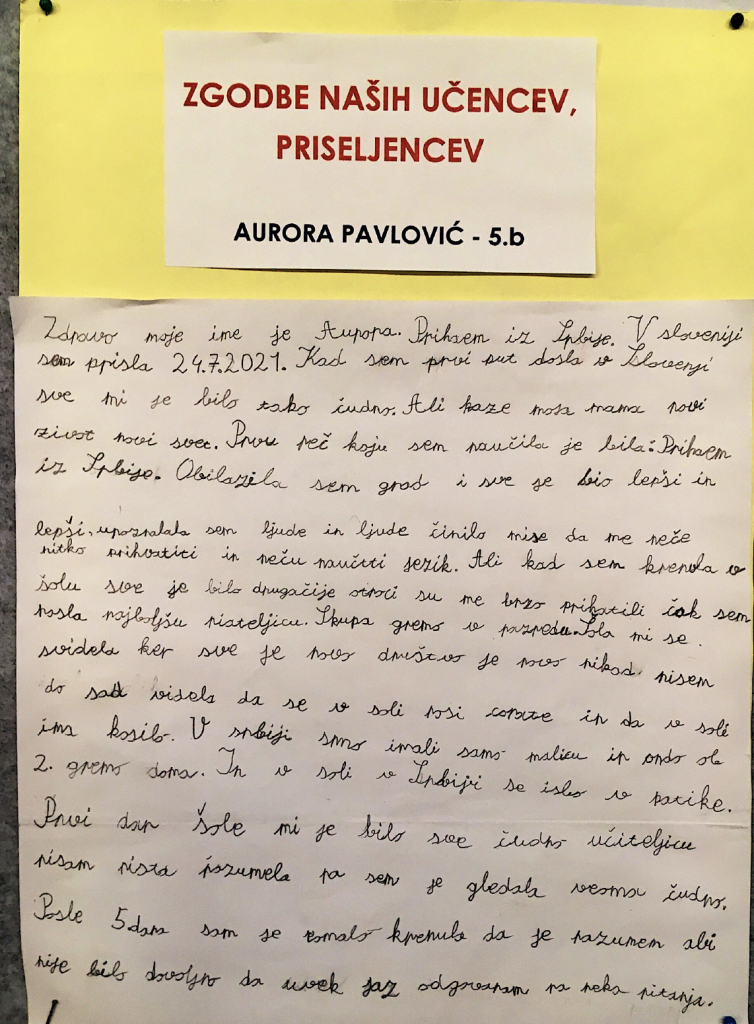 ZGODBE NAŠIH UČENCEV,
PRISELJENCEV
AURORA PAVLOVIĆ - 5.b
Zdravo moje ime je Aurora. Prihaem iz Srbije. V sloveniji
sem prisla 24.7.2021. Kad sem prvi put dosla v Slovenji
sve mi je bilo tako čudno. Ali kaze moja mama novi
život novi svet. Prvu reč koju sem naučila je bila: Prihaem
iz Srbije. Obilazila sem grad i sve je bio lepši in
lepši, upoznalala sem ljude in ljude činilo mise da me neče
nitko prihvatiti in neču naučiti jezik. Ali kad sem krenula v
šolu sve je bilo drugačije otroci su me brzo prihatili čak sem
nasla najboljšu priateljicu. Skupa gremo v razredu. Šola mi se
svidela ker sve je novo društvo je novo nikad nisem
do sad videla da se v soli nosi copate in da v soli
ima kosilo. V srbiji smo imali samo malicu in ondo ob
2. gremo doma. In v soli v Srbiji se islo v patike.
Prvi dan šole mi je bilo sve čudno učiteljicu
nisam nista razumela pa sem je gledala veoma čudno.
Posle 5 dana sam je pomalo krenula da je razumem ali
nije bilo dovoljno da uvek jaz odgovaram na neka pitanja.